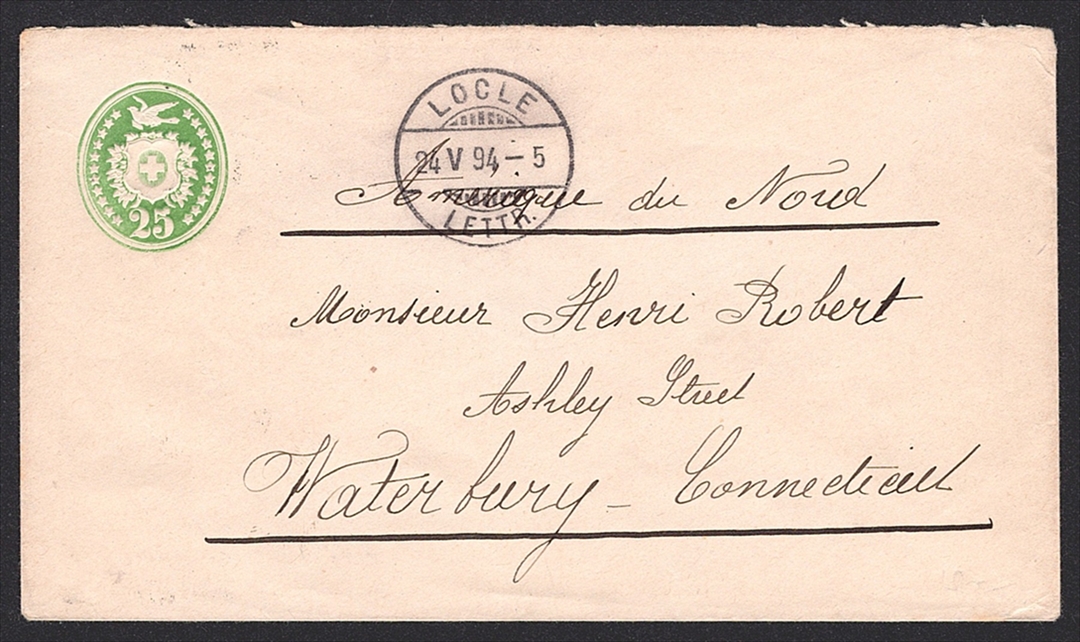 25
LOCLE
24 V 94 – 5
LETTR.
Amérique du Nord
Monsieur Henri Robert
Ashley Street
Waterbury – Connecticut